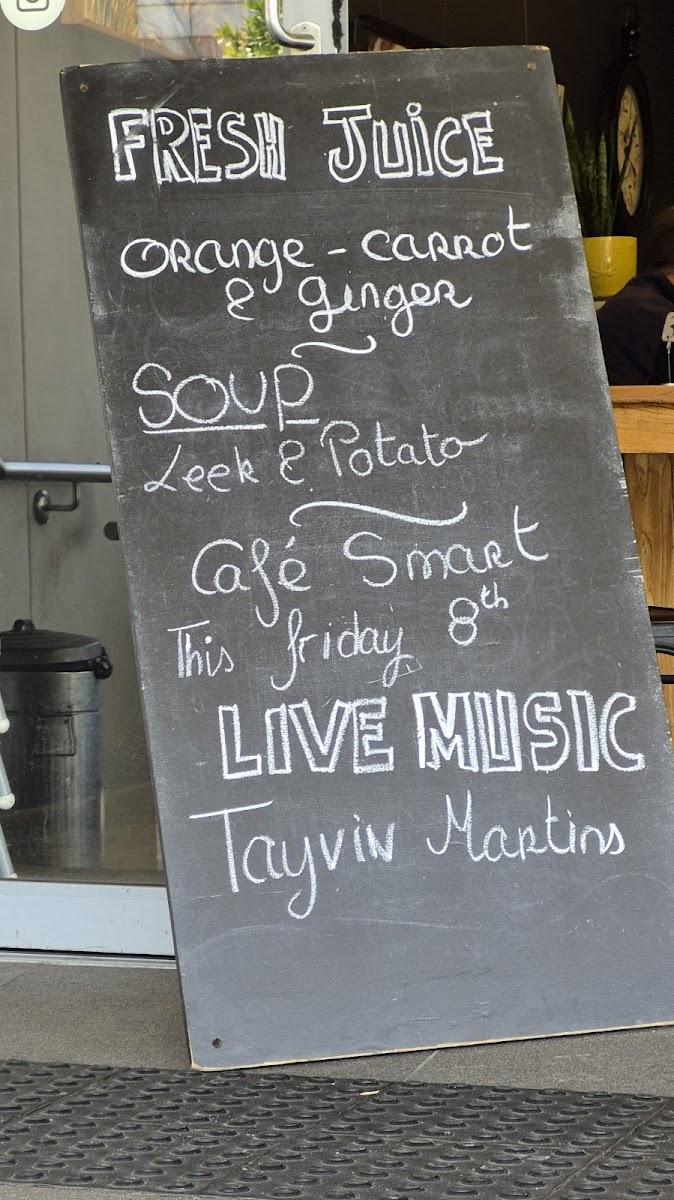 FRESH JUICE
ORANGE - CARROT
& GINGER
SOUP
Leek & Potato
Café Smart
This friday 8th
LIVE MUSIC
Tayvin Martins